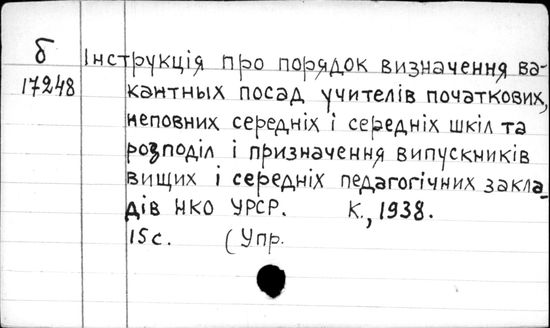 б
17248
Інструкція про порядок визначення ва-
кантных посад учителів початкових,
неповних середніх і середніх шкіл та
розподіл і призначення випускників
вищих і середніх педагогічних закла-
дів НКО УРСР. К., 1938.
15 с. (Упр.